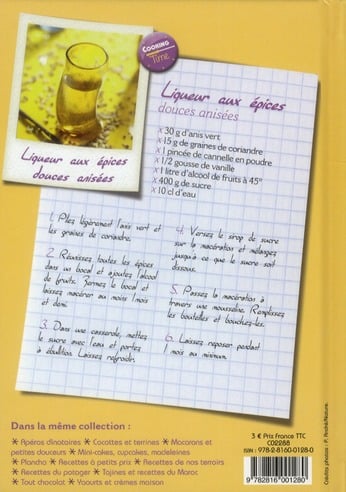 COOKING
Time
Liqueur aux épices
douces anisées
Liqueur aux épices
douces anisées
X 30 g d'anis vert
X 15 g de graines de coriandre
X 1 pincée de cannelle en poudre
X 1/2 gousse de vanille
X 1 litre d'alcool de fruits à 45°
X 400 g de sucre
X 10 cl d'eau
1. Pilez légèrement l'anis vert et
les graines de coriandre.
2. Réunissez toutes les épices
dans un bocal et ajoutez l'alcool
de fruits. Fermez le bocal et
laissez macérer au moins 1 mois
et demi.
3. Dans une casserole, mettez
le sucre avec l'eau et portez
à ébullition. Laissez refroidir.
4. Versez le sirop de sucre
sur la macération et mélangez
jusqu'à ce que le sucre soit
dissous.
5. Passez la macération à
travers une mousseline. Remplissez
les bouteilles et bouchez-les.
6. Laissez reposer pendant
1 mois au minimum.
Dans la même collection :
* Apéros dînatoires * Cocottes et terrines * Macarons et
petites douceurs * Mini-cakes, cupcakes, madeleines
* Plancha * Recettes à petits prix * Recettes de nos terroirs
* Recettes du potager * Tajines et recettes du Maroc
* Tout chocolat * Yaourts et crèmes maison
3 € Prix France TTC
CO2288
ISBN : 978-2-8160-0128-0
9 782816 001280
Crédits photos : P. Asset/Nature.